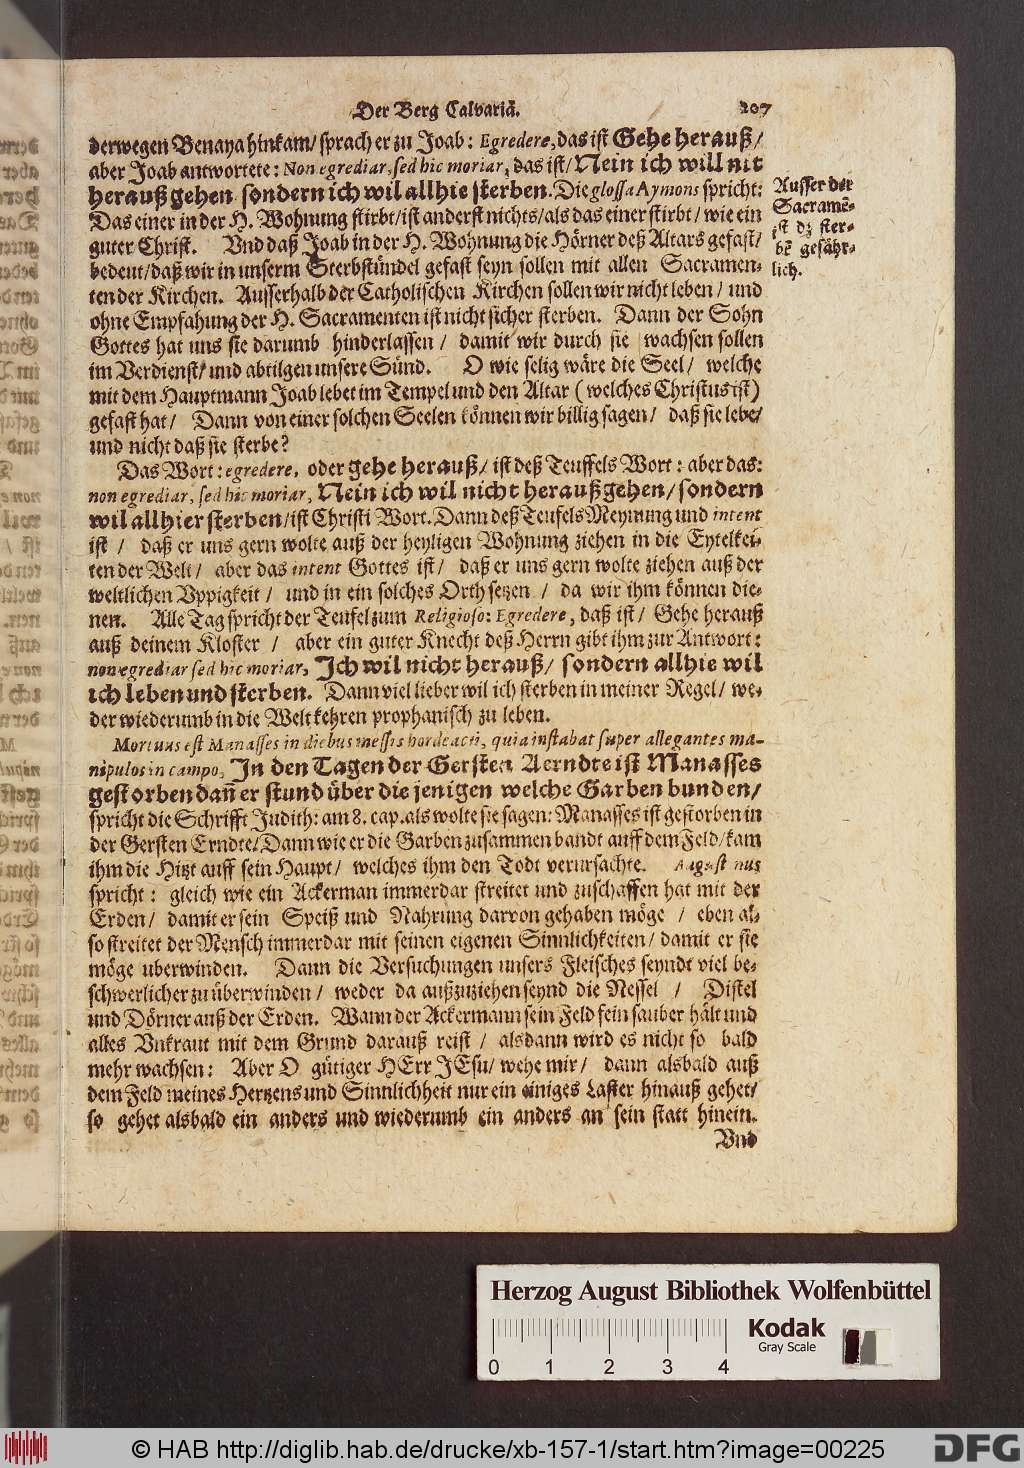 Der Berg Calvariæ. 207
derwegen Benaya hinkam/ sprach er zu Joab: Egredere, das ist Gehe herauß/
aber Joab antwortete: Non egrediar, sed hic moriar, das ist/ Nein ich will nit
herauß gehen sondern ich wil allhie sterben. Die glossa Aymons spricht:
Das einer in der H. Wohnung stirbt/ ist anderst nichts/ als das einer stirbt/ wie ein
guter Christ. Vnd daß Joab in der H. Wohnung die Hörner deß Altars gefast/
bedeut/ daß wir in unserm Sterbstündel gefast seyn sollen mit allen Sacramen-
ten der Kirchen. Ausserhalb der Catholischen Kirchen sollen wir nicht leben/ und
ohne Empfahung der H. Sacramenten ist nicht sicher sterben. Dann der Sohn
Gottes hat uns sie darumb hinderlassen/ damit wir durch sie wachsen sollen
im Verdienst/ und abtilgen unsere Sünd. O wie selig wäre die Seel/ welche
mit dem Hauptmann Joab lebet im Tempel und den Altar (welches Christus ist)
gefast hat/ Dann von einer solchen Seelen können wir billig sagen/ daß sie lebe/
und nicht daß sie sterbe?
Ausser der
Sacramē-
ist dz ster-
bē gefähr-
lich.
Das Wort: egredere, oder gehe herauß/ ist deß Teuffels Wort: aber das:
non egrediar, sed hic moriar, Nein ich wil nicht herauß gehen/ sondern
wil allhier sterben/ ist Christi Wort. Dann deß Teufels Meynung und intent
ist / daß er uns gern wolte auß der heyligen Wohnung ziehen in die Eytelkei-
ten der Welt/ aber das intent Gottes ist/ daß er uns gern wolte ziehen auß der
weltlichen Vppigkeit/ und in ein solches Orth setzen / da wir ihm können die-
nen. Alle Tag spricht der Teufel zum Religioso: Egredere, daß ist/ Gehe herauß
auß deinem Kloster / aber ein guter Knecht deß Herrn gibt ihm zur Antwort:
non egrediar sed hic moriar, Ich wil nicht herauß/ sondern allhie wil
ich leben und sterben. Dann viel lieber wil ich sterben in meiner Regel/ we-
der wiederumb in die Welt kehren prophanisch zu leben.
Mortuus est Manasses in diebus messis hordeacei, quia instabat super allegantes ma-
nipulos in campo, In den Tagen der Gersten Aerndte ist Manasses
gestorben dañ er stund über die jenigen welche Garben bunden/
spricht die Schrifft Judith: am 8. cap. als wolte sie sagen: Manasses ist gestorben in
der Gersten Erndte/ Dann wie er die Garben zusammen bandt auff dem Feld/ kam
ihm die Hitzt auff sein Haupt/ welches ihm den Todt verursachte. Augustinus
spricht: gleich wie ein Ackerman immerdar streitet und zuschaffen hat mit der
Erden/ damit er sein Speiß und Nahrung darvon gehaben möge / eben al-
so streitet der Mensch immerdar mit seinen eigenen Sinnlichkeiten/ damit er sie
möge uberwinden. Dann die Versuchungen unsers Fleisches seyndt viel be-
schwerlicher zu überwinden/ weder da außzuziehen seynd die Nessel / Distel
und Dörner auß der Erden. Wann der Ackermann sein Feld fein sauber hält und
alles Vnkraut mit dem Grund darauß reist/ alsdann wird es nicht so bald
mehr wachsen: Aber O gütiger HErr JEsu/ wehe mir/ dann alsbald auß
dem Feld meines Hertzens und Sinnlichheit nur ein einiges Laster hinauß gehet/
so gehet alsbald ein anders und wiederumb ein anders an sein statt hinein.
Vnd
Herzog August Bibliothek Wolfenbüttel
Kodak
Gray Scale
0 1 2 3 4
© HAB http://diglib.hab.de/drucke/xb-157-1/start.htm?image=00225
DFG